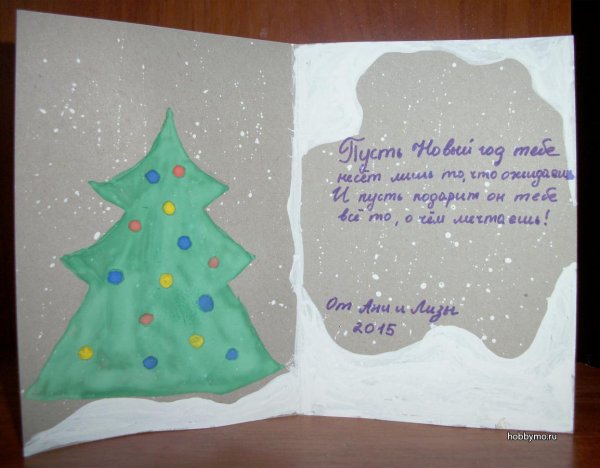 Пусть Новый год тебе
несёт лишь то, что ожидаешь
И пусть подарит он тебе
всё то, о чём мечтаешь!
От Ани и Лизы
2015
hobbymo.ru